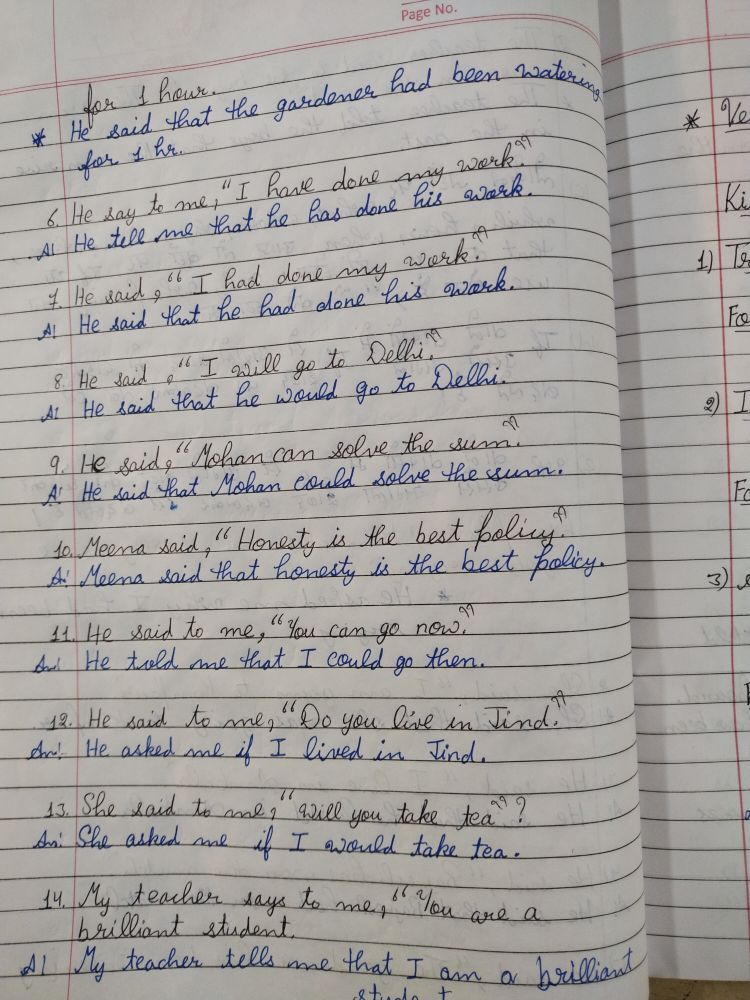 Page No.
for 1 hour.
* He said that the gardener had been watering
for 1 hr.
6. He say to me, "I have done my work."
A! He tell me that he has done his work.
7. He said, "I had done my work."
A! He said that he had done his work.
8. He said, "I will go to Delhi."
A! He said that he would go to Delhi.
9. He said, "Mohan can solve the sum."
A! He said that Mohan could solve the sum.
10. Meena said, "Honesty is the best policy."
A! Meena said that honesty is the best policy.
11. He said to me, "You can go now."
An! He told me that I could go then.
12. He said to me, "Do you live in Jind."
An! He asked me if I lived in Jind.
13. She said to me, "Will you take tea"?
An! She asked me if I would take tea.
14. My teacher says to me, "You are a
brilliant student.
A! My teacher tells me that I am a brilliant
student
* Ve
Ki
1) Tr
Fo
2) I
Fo
3)